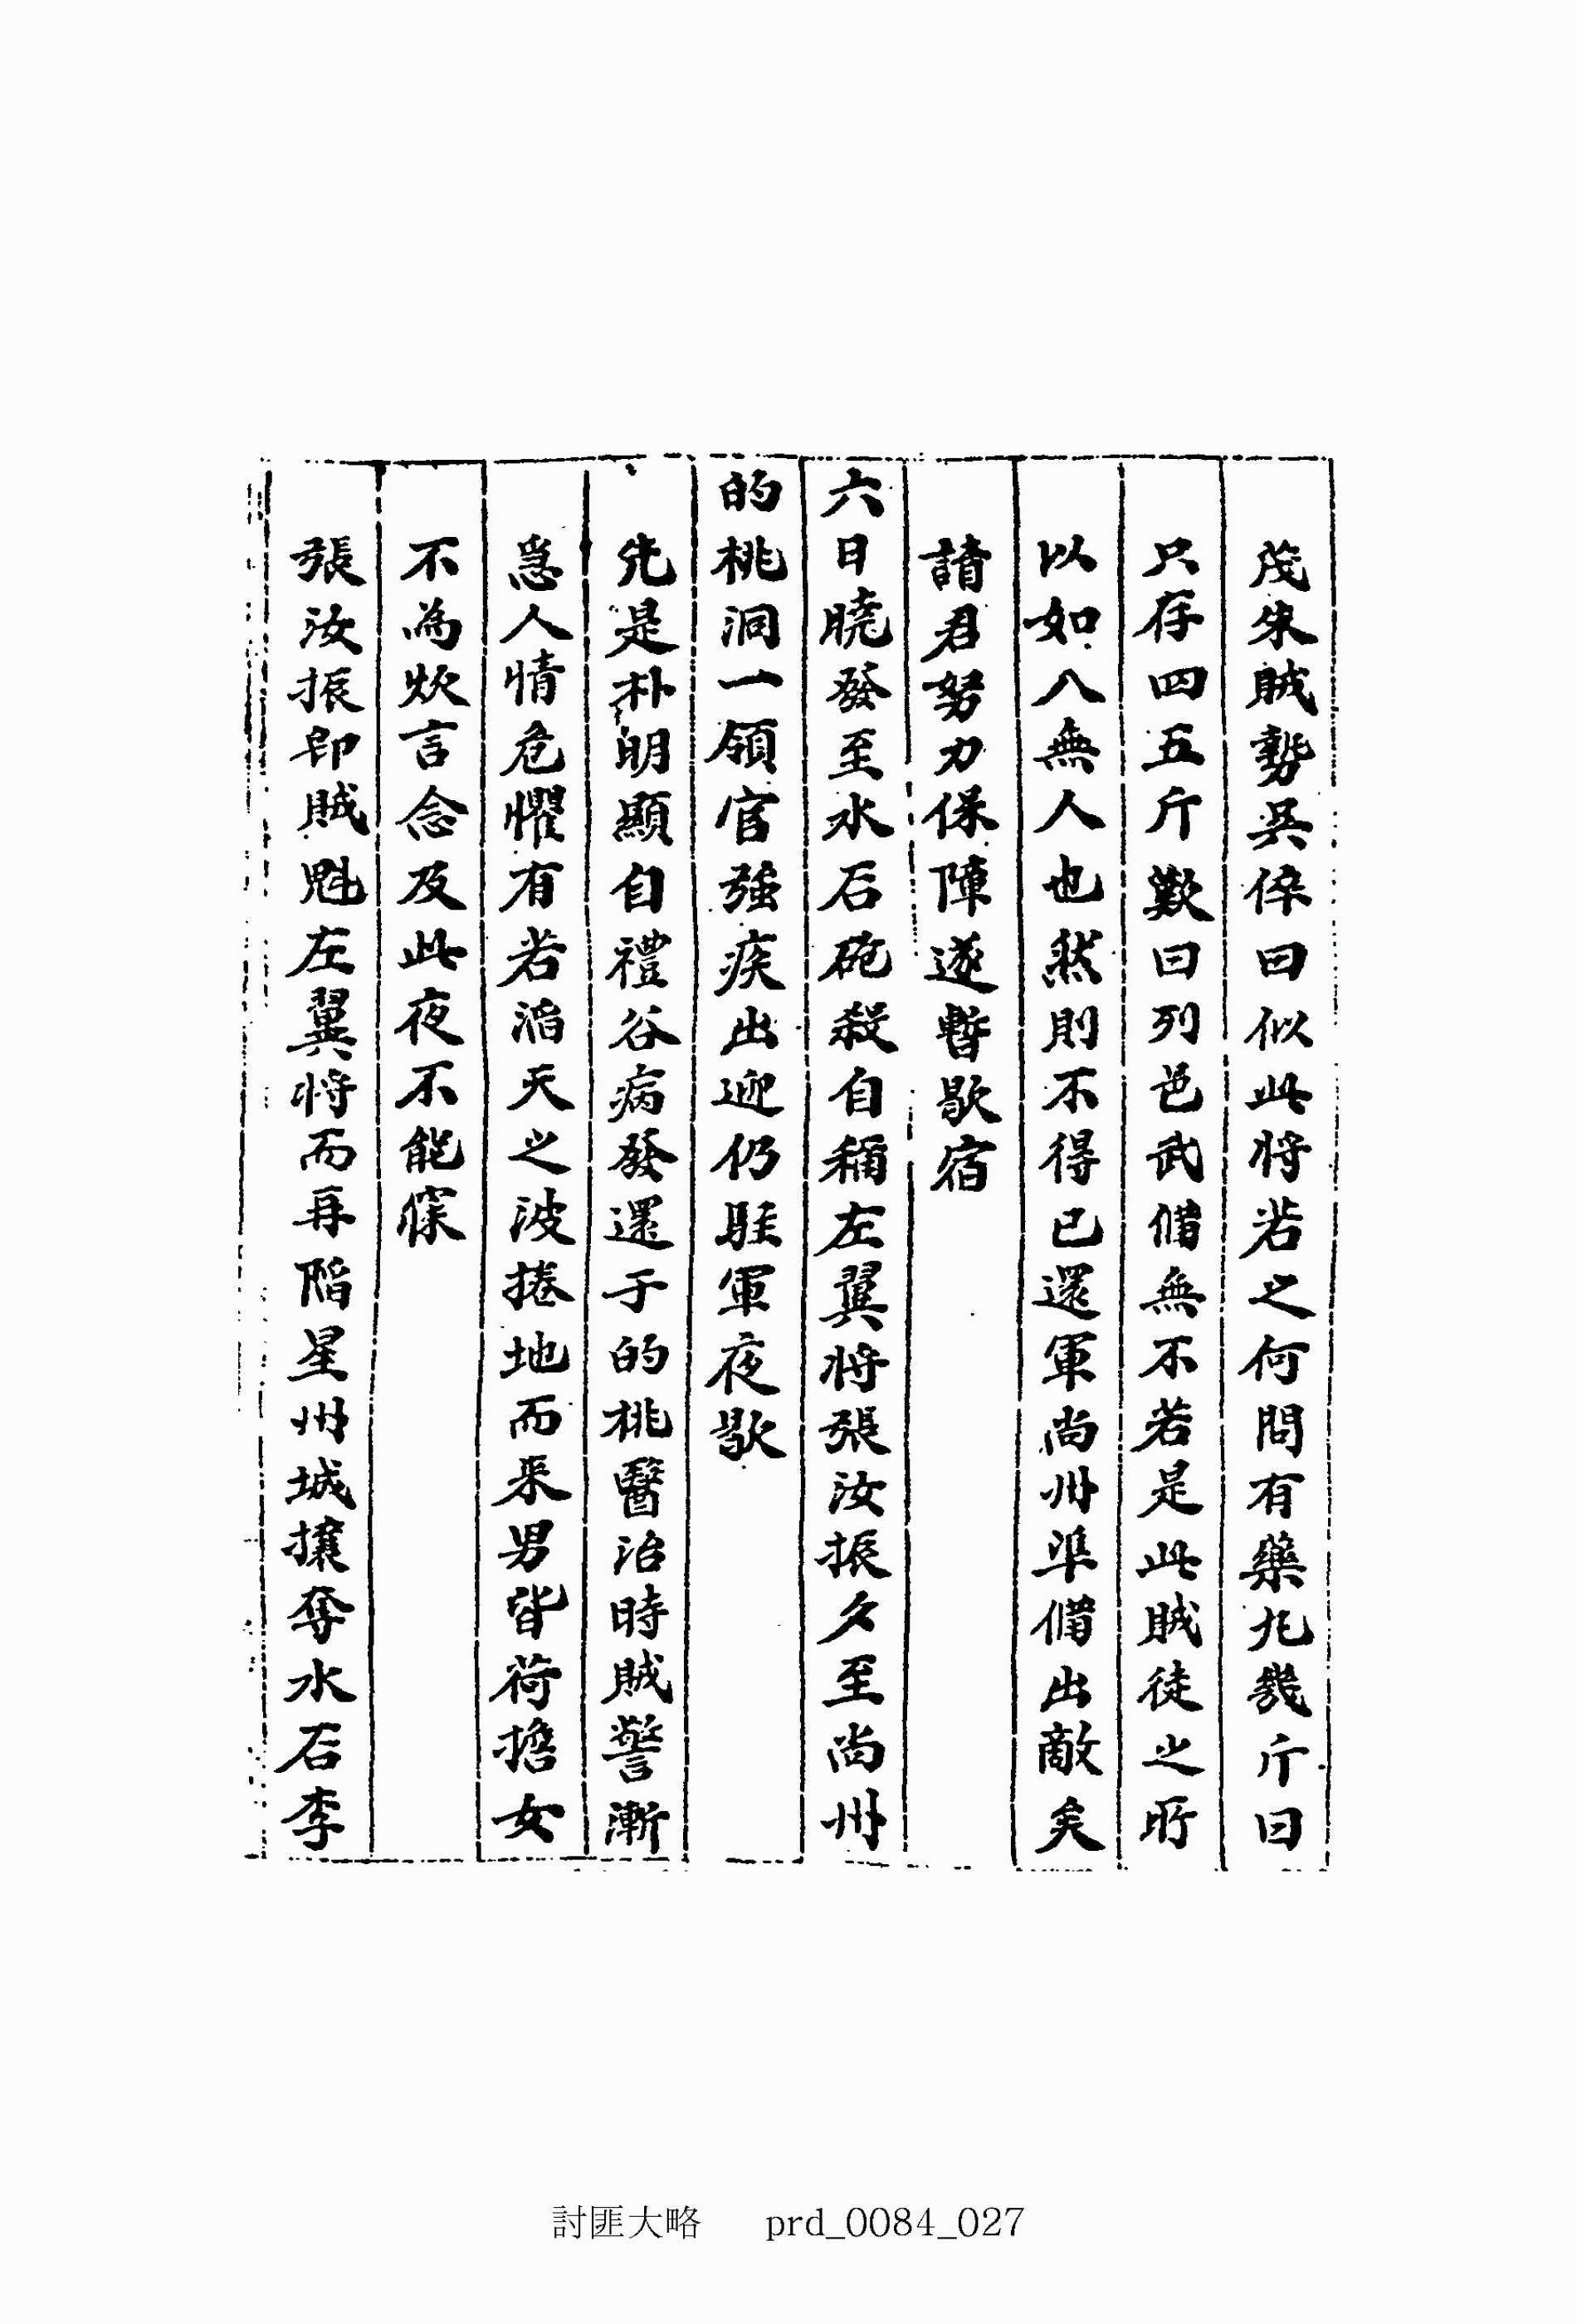 茂朱賊勢吳倅曰似此將若之何問有藥丸幾斤曰
只存四五斤歎曰列邑武備無不若是此賊徒之所
以如入無人也然則不得已還軍尚州準備出敵矣
請君努力保陣遂暫歇宿
六日曉發至水石砲殺自稱左翼將張汝振夕至尚州
的桃洞一領官強疾出迎仍駐軍夜歇
先是朴明顯自禮谷病發還于的桃醫治時賊警漸
急人情危懼有若滔天之波捲地而來男皆荷擔女
不為炊言念及此夜不能寐
張汝振卽賊魁左翼將而再陷星州城攘奪水石李
討匪大略 prd_0084_027